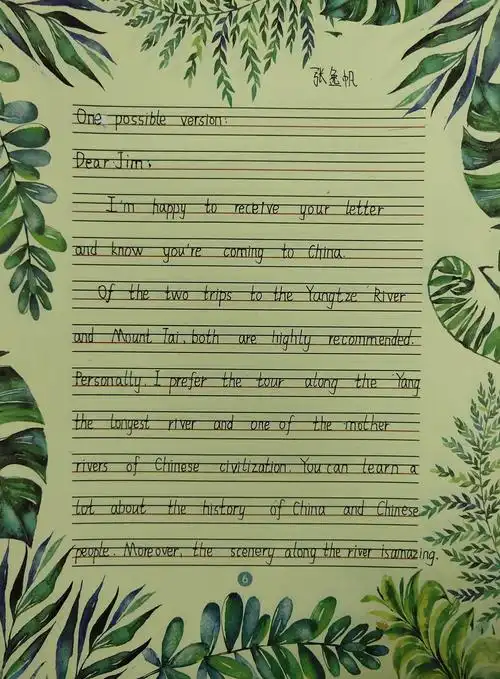 张兔帆
One possible version:
Dear Jim,
I'm happy to receive your letter
and know you're coming to China.
Of the two trips to the Yangtze River
and Mount Tai, both are highly recommended.
Personally, I prefer the tour along the Yang
the longest river and one of the mother
rivers of Chinese civilization. You can learn a
lot about the history of China and Chinese
people. Moreover, the scenery along the river is amazing.
6